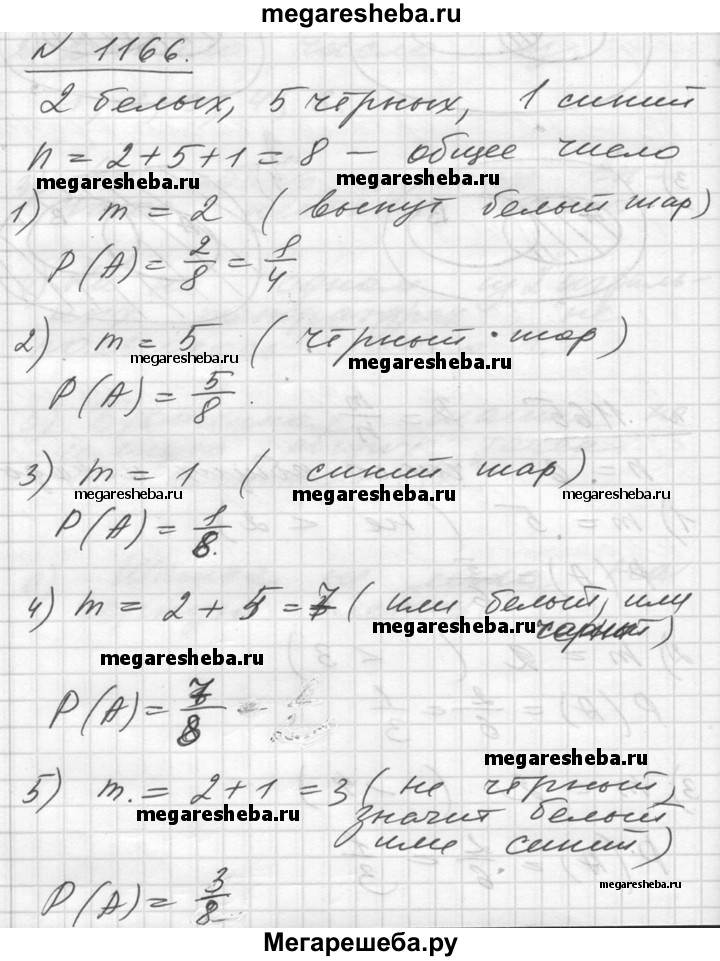 megaresheba.ru
N 1166.
2 белых, 5 чёрных, 1 синий
n = 2 + 5 + 1 = 8 — общее число
megaresheba.ru megaresheba.ru
1) m = 2 (вынут белый шар)
P(A) = 2/8 = 1/4
megaresheba.ru
2) m = 5 (чёрный шар)
megaresheba.ru megaresheba.ru
P(A) = 5/8.
3) m = 1 (синий шар).
megaresheba.ru megaresheba.ru megaresheba.ru
P(A) = 1/8.
4) m = 2 + 5 = 7 (или белый, или
megaresheba.ru чёрный)
megaresheba.ru
P(A) = 7/8
megaresheba.ru
5) m. = 2 + 1 = 3 (не чёрный,
megaresheba.ru значит белый
или синий)
megaresheba.ru
P(A) = 3/8
Мегарешеба.ру